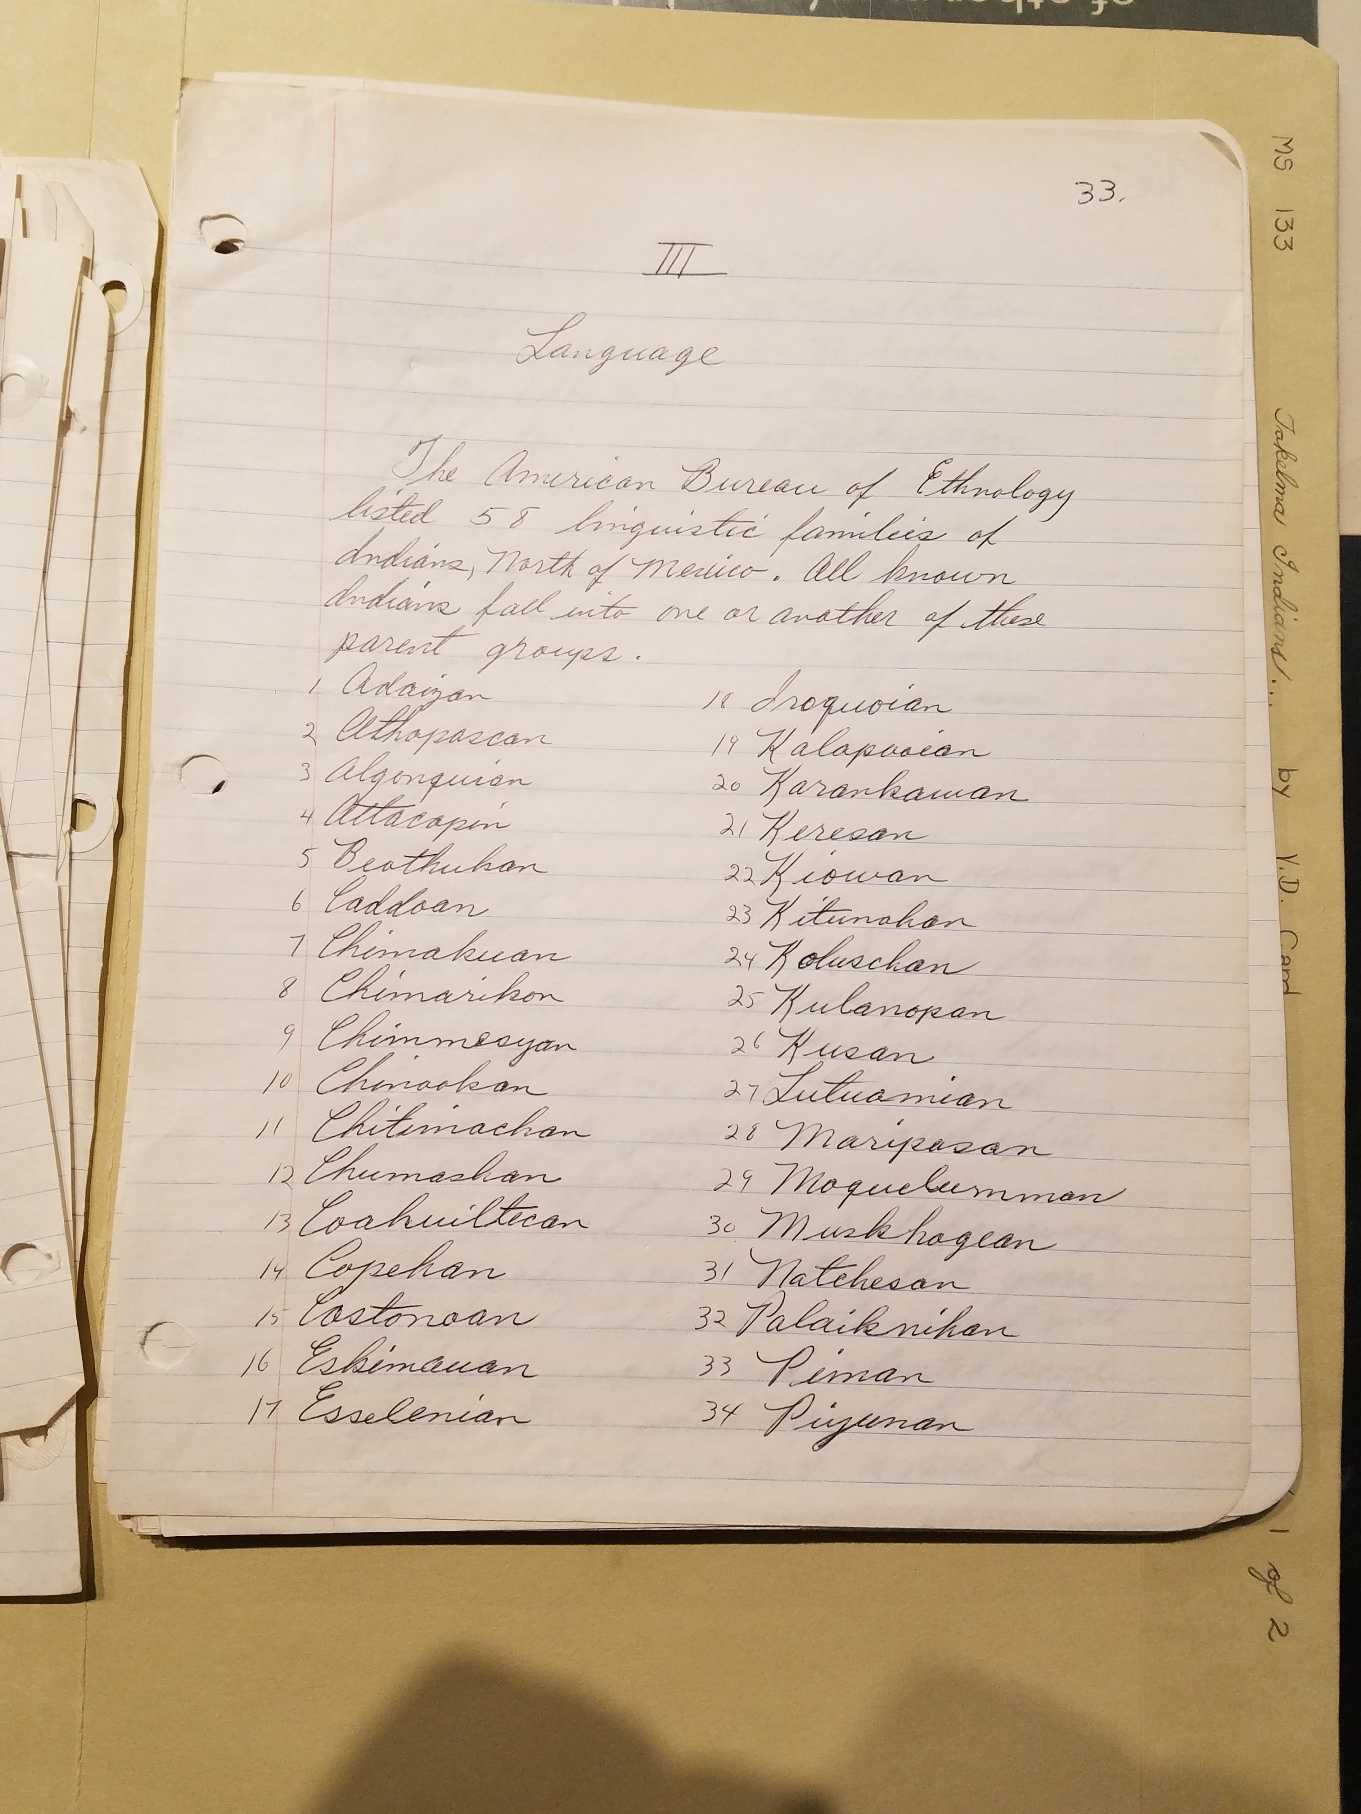 33.
III
Language
The American Bureau of Ethnology
listed 58 linguistic families of
Indians, North of Mexico. All known
Indians fall into one or another of these
parent groups.
1 Adaizan
2 Athapascan
3 Algonquian
4 Attacapin
5 Beothukan
6 Caddoan
7 Chimakuan
8 Chimarikon
9 Chimmesyan
10 Chinookan
11 Chitimachan
12 Chumashan
13 Coahuiltecan
14 Copehan
15 Costonoan
16 Eskimauan
17 Esselenian
18 Iroquoian
19 Kalapooian
20 Karankawan
21 Keresan
22 Kiowan
23 Kitunahan
24 Koluschan
25 Kulanapan
26 Kusan
27 Lutuamian
28 Mariposan
29 Moquelumman
30 Muskhogean
31 Natchesan
32 Palaiknihan
33 Piman
34 Pujunan
MS 133 Takelma Indians... by Y.D. 1 of 2